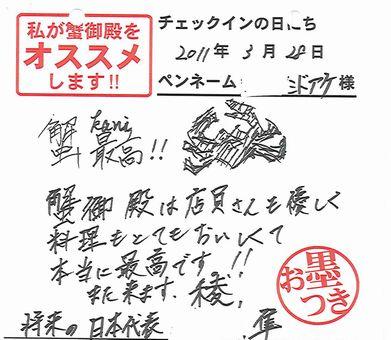 私が蟹御殿を
オススメ
します!!
チェックインの日にち
2011年 3月 28日
ペンネーム ミドアケ様
蟹 kani 最高!!
蟹御殿は店員さんも優しく
料理もとてもおいしくて
本当に最高です。!!
また来ます。稜,
将来の日本代表 隼
お墨つき